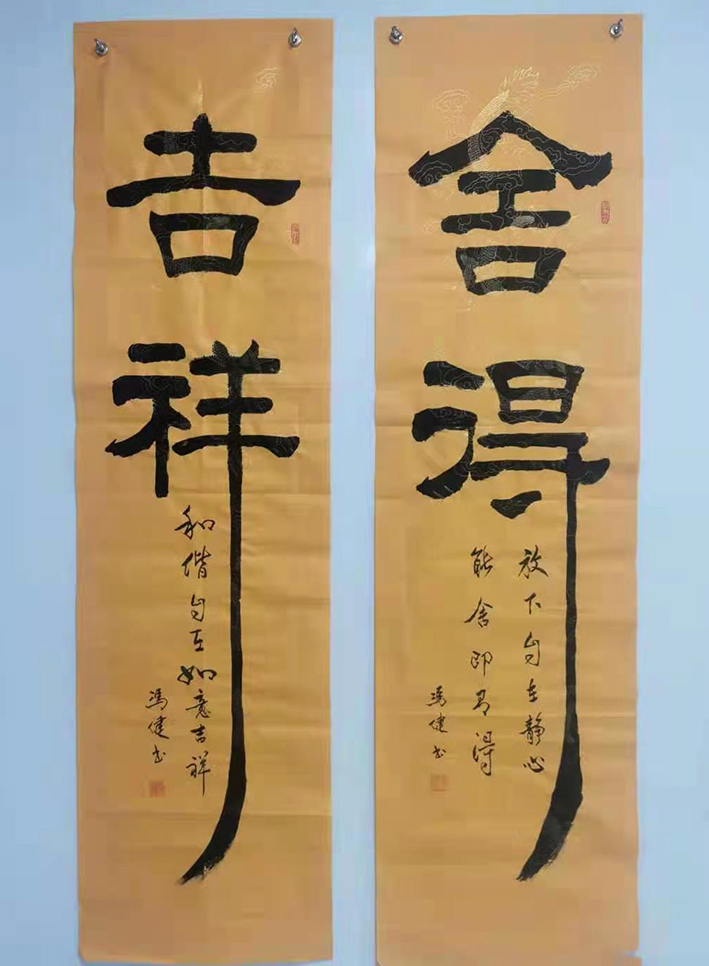 舍得
放下自在静心
能舍即有得
冯健书
吉祥
和谐自在如意吉祥
冯健书